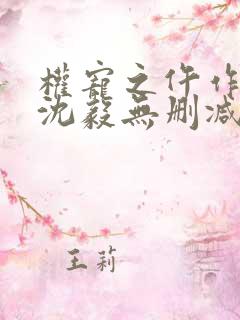 權寵之仵作
沈毅無刪減
王莉